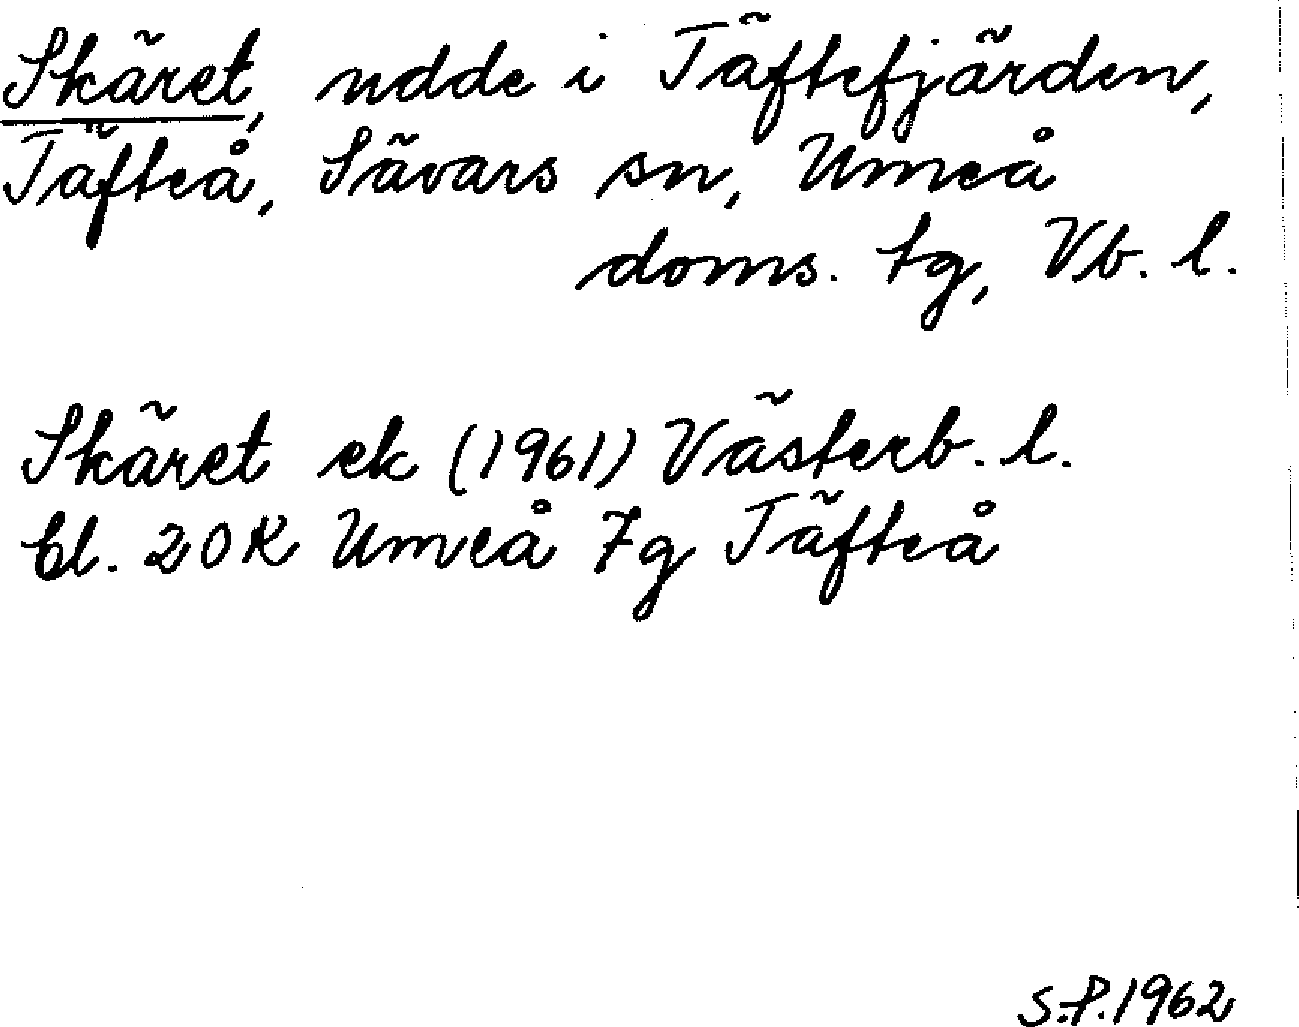 Skäret, udde i Täftefjärden,
Täfteå, Sävars sn, Umeå
doms. tg, Vb. l.
Skäret ek (1961) Västerb. l.
bl. 20K Umeå 7g Täfteå
S.P. 1962